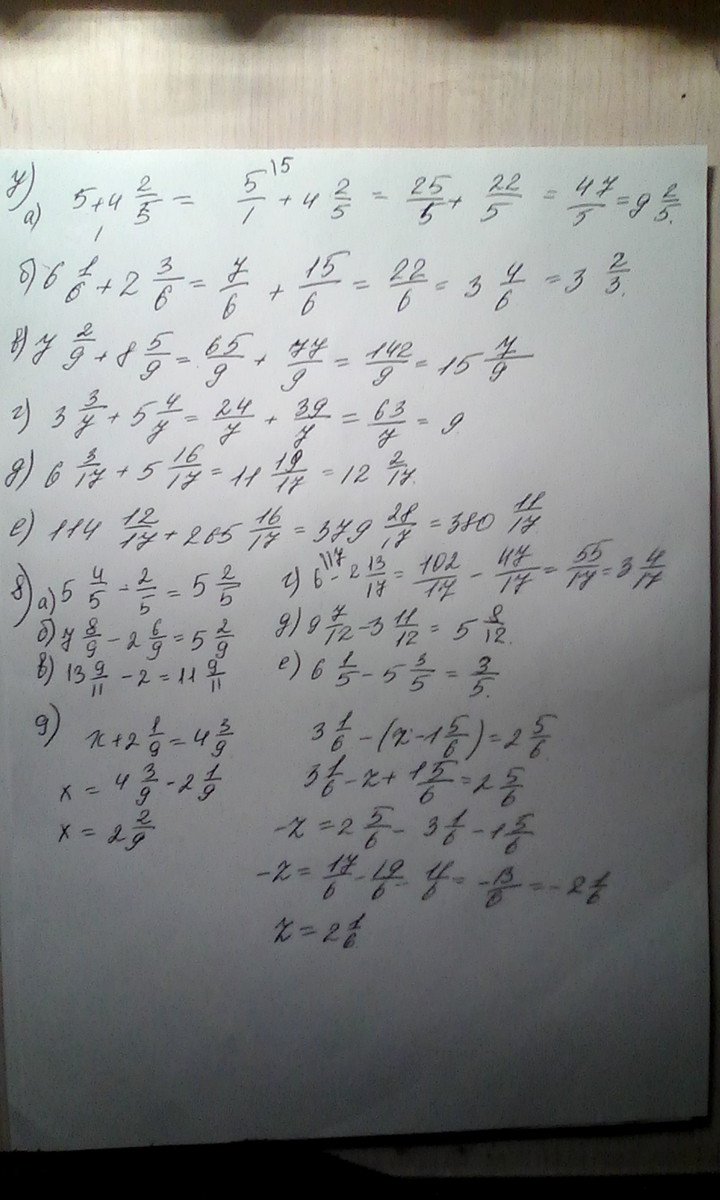 7)
а) 5 + 4 2/5 = 5/1 \5 + 4 2/5 = 25/5 + 22/5 = 47/5 = 9 2/5.
1
б) 6 1/6 + 2 3/6 = 7/6 + 15/6 = 22/6 = 3 4/6 = 3 2/3.
в) 7 2/9 + 8 5/9 = 65/9 + 77/9 = 142/9 = 15 7/9
г) 3 3/7 + 5 4/7 = 24/7 + 39/7 = 63/7 = 9.
д) 6 3/17 + 5 16/17 = 11 19/17 = 12 2/17.
е) 114 12/17 + 265 16/17 = 379 28/17 = 380 11/17.
8) а) 5 4/5 - 2/5 = 5 2/5
б) 7 8/9 - 2 6/9 = 5 2/9
в) 13 9/11 - 2 = 11 9/11
г) 6 \17 - 2 13/17 = 102/17 - 47/17 = 55/17 = 3 4/17
д) 9 7/12 - 3 11/12 = 5 8/12.
е) 6 1/5 - 5 3/5 = 3/5.
9)
x + 2 1/9 = 4 3/9
x = 4 3/9 - 2 1/9
x = 2 2/9
3 1/6 - (z - 1 5/6) = 2 5/6
3 1/6 - z + 1 5/6 = 2 5/6
-z = 2 5/6 - 3 1/6 - 1 5/6
-z = 17/6 - 19/6 - 11/6 = -13/6 = -2 1/6
z = 2 1/6.